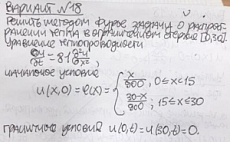 Вариант №18
Решить методом Фурье задачу о распрост-
ранении тепла в ограниченном стержне [0,30].
Уравнение теплопроводности
∂u/∂t = 81 ∂²u/∂x²,
начальное условие
u(x,0) = φ(x) = { x/300, 0≤x<15
(30-x)/300, 15≤x≤30
граничные условия u(0,t)=u(30,t)=0.